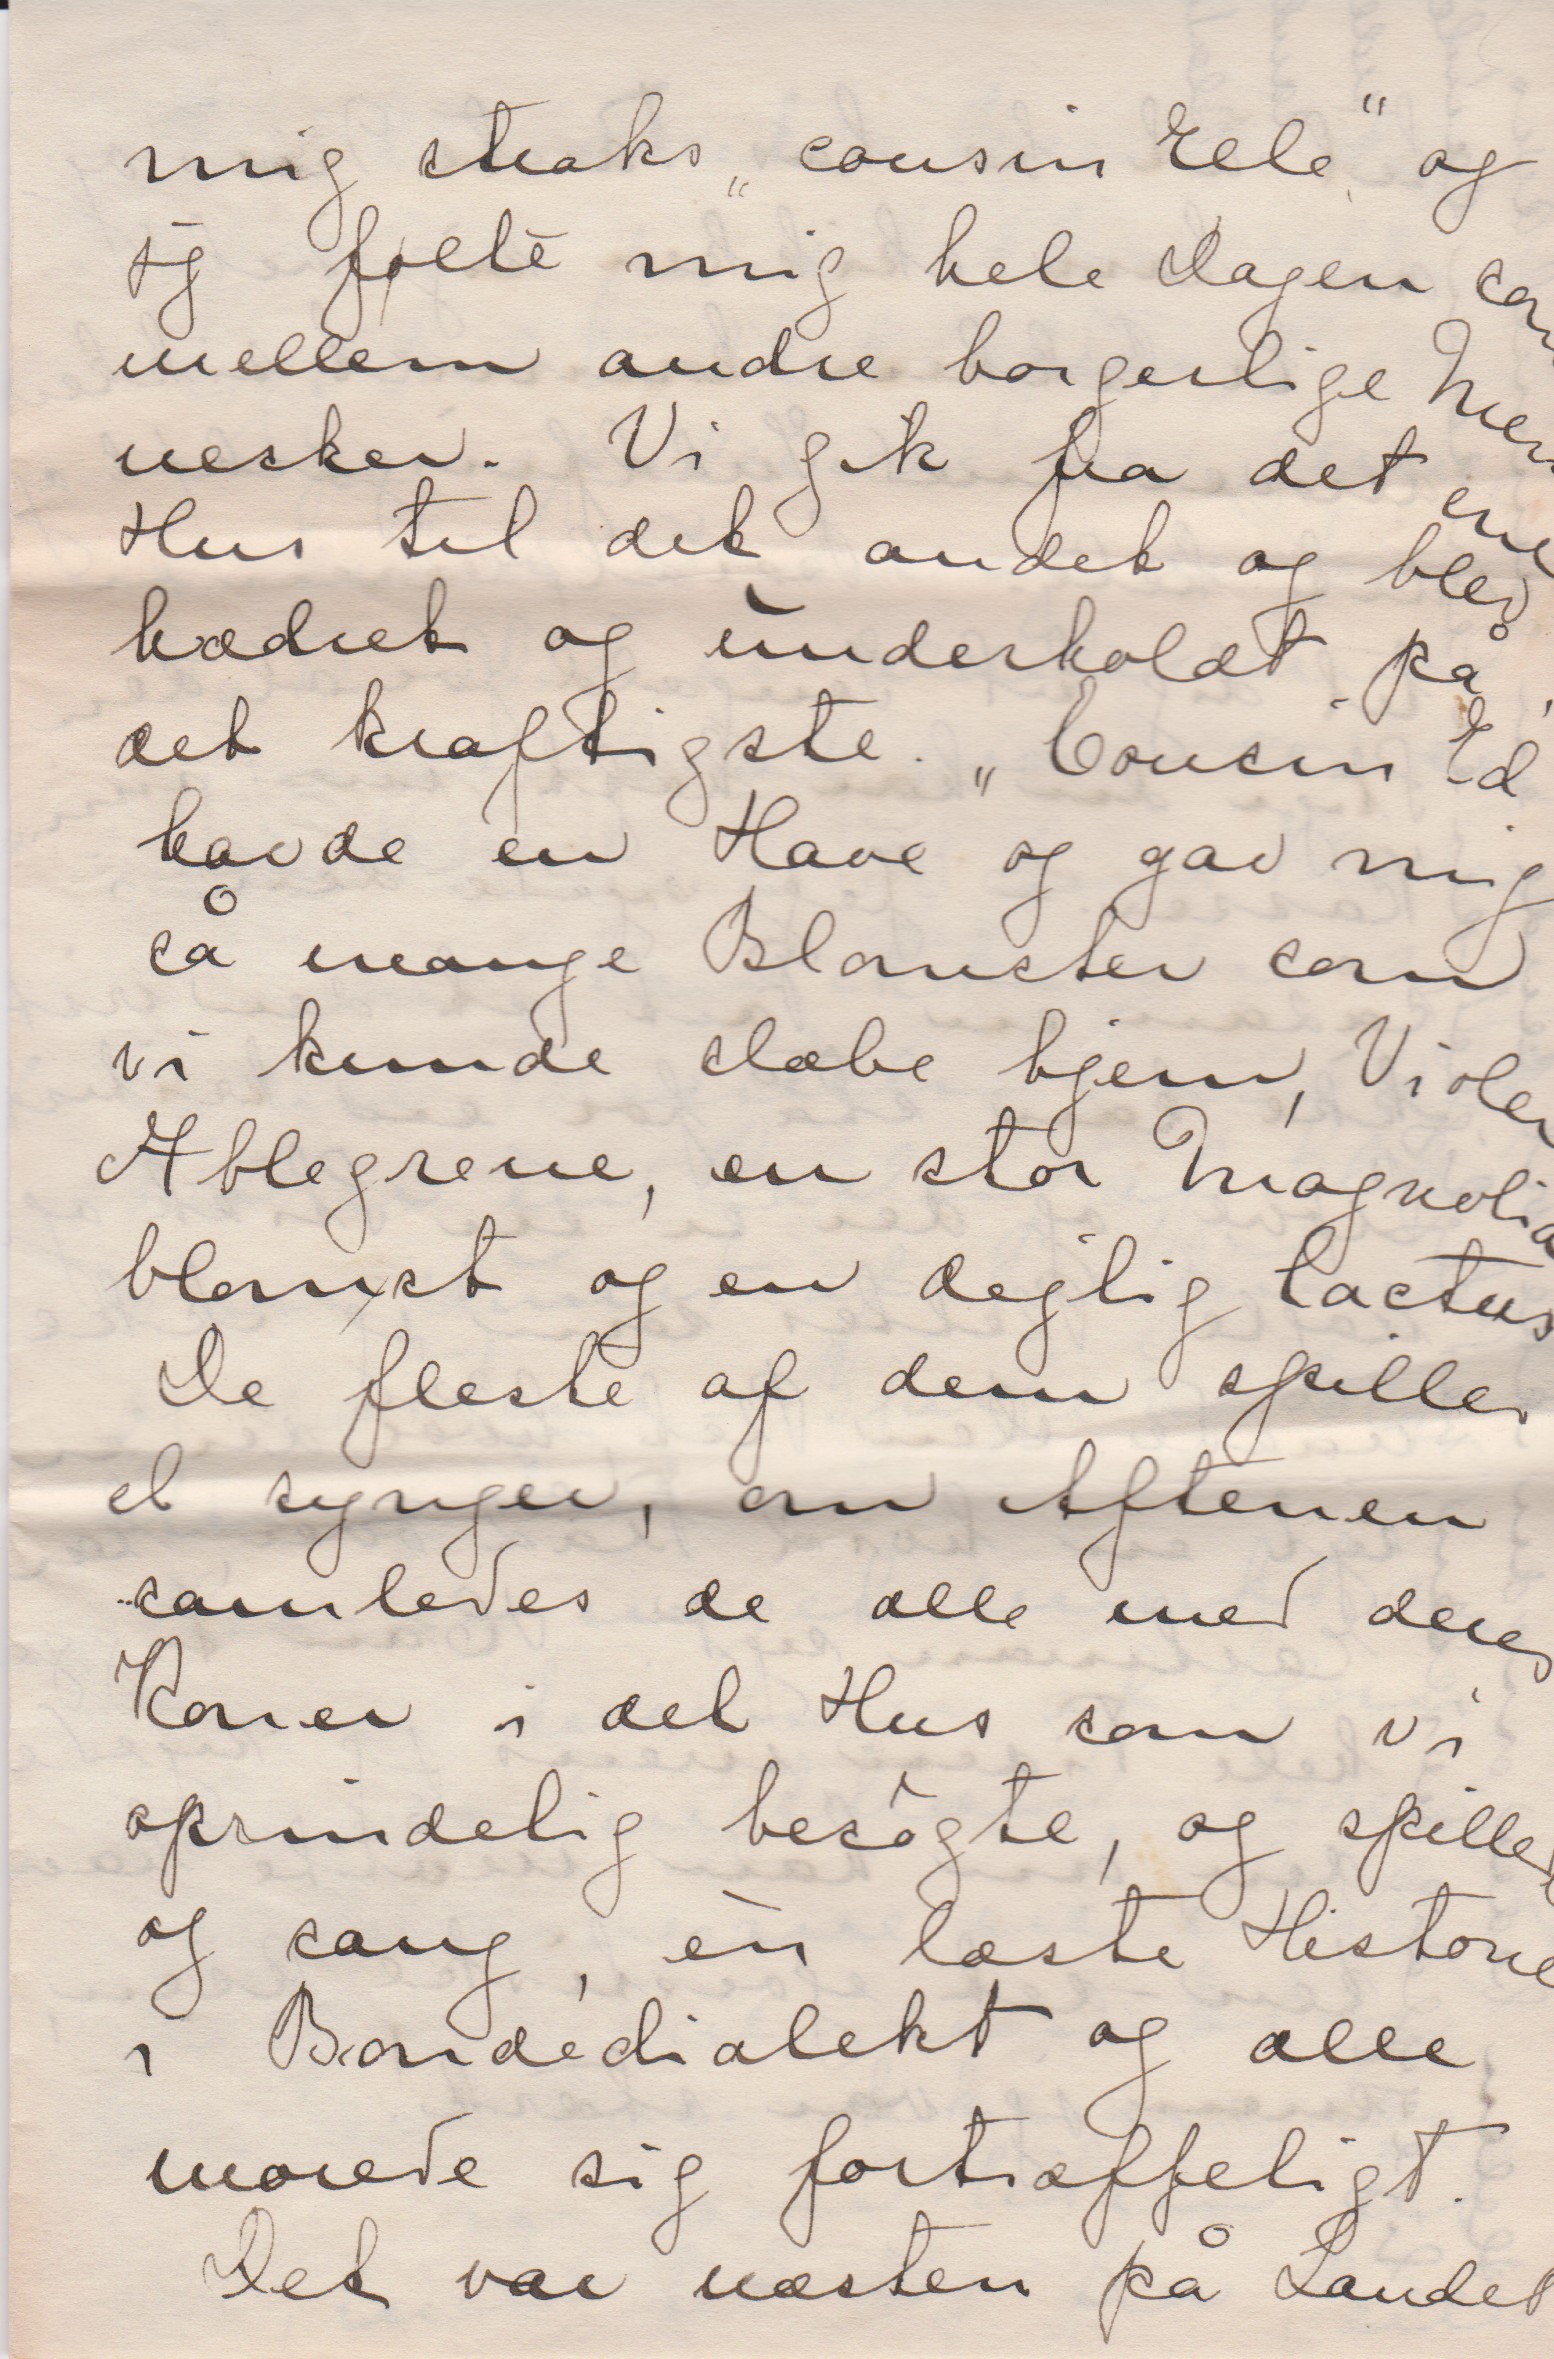 mig straks „cousin Elle“ og
jeg følte mig hele Dagen som
mellem andre borgerlige Men
nesker. Vi gik fra det ene
Hus til det andet og blev
hædret og underholdt på
det kraftigste. „Cousin Ed
havde en Have og gav mig
så mange Blomster som
vi kunde slæbe hjem, Violer
Æblegrene, en stor Magnolia
blomst og en dejlig Cactus
De fleste af dem spiller
el synger, om Aftenen
samledes de alle med deres
Koner i det Hus som vi
oprindelig besøgte, og spilled
og sang, èn læste Historie
i Bondedialekt og alle
morede sig fortræffeligt.
Det var næsten på Landet